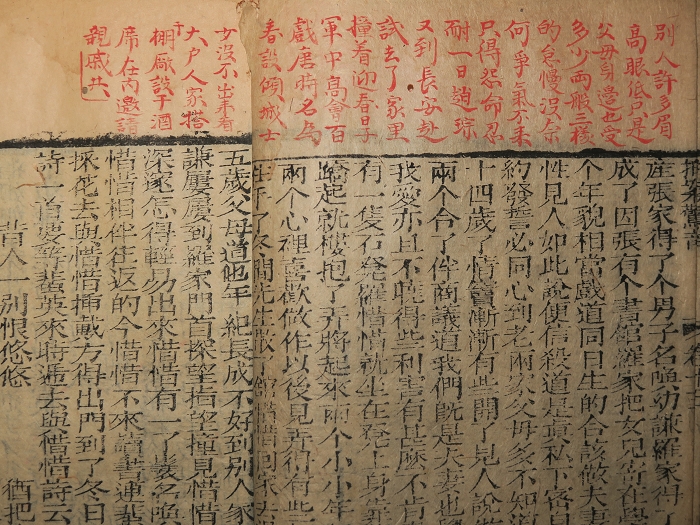 別人許多眉
高眼低只是
父母身邊也受
多少兩般三樣
的怠慢沒奈
何爭氣不來
只得怨命忍
耐一日趙琮
又到長安赴
試去了家里
撞着迎春日子
軍中高會百
戲唐時名為
春設傾城士
女沒不出來看
大戶人家搭
棚廠設于酒
席在內邀請
親戚共
産張家得了个男子名喚幼謙羅家得了
成了因張有个書館羅家把女兒寄在學
个年貌相當戲道同日生的合該做夫妻
性見人如此說便信殺道是真私下密
約發誓必同心到老兩家父母多不知道
十四歲了情竇漸漸有些開了見人說
兩个合了伴商議道我們旣是夫妻也
我愛亦且不曉得些利害有甚麽不肯
有一隻石凳羅惜惜就坐在凳上身靠
蹺起就摟抱了弄將起來兩个小小年
兩个心裡喜歡做作以後見弄得有些
冬間先生散了館惜惜回家去
五歲父母道他年紀長成不好到別人家
謙屢屢到羅家門首探望指望撞見惜惜
深邃怎得輕易出來惜惜有一丫鬟名喚
惜惜相伴往返的今惜惜不來讀書連蜚
採花去與惜惜揷戴方得出門到了冬日
詩一首要等蜚英來時逓去與惜惜詩云
昔人一別恨悠悠 猶把